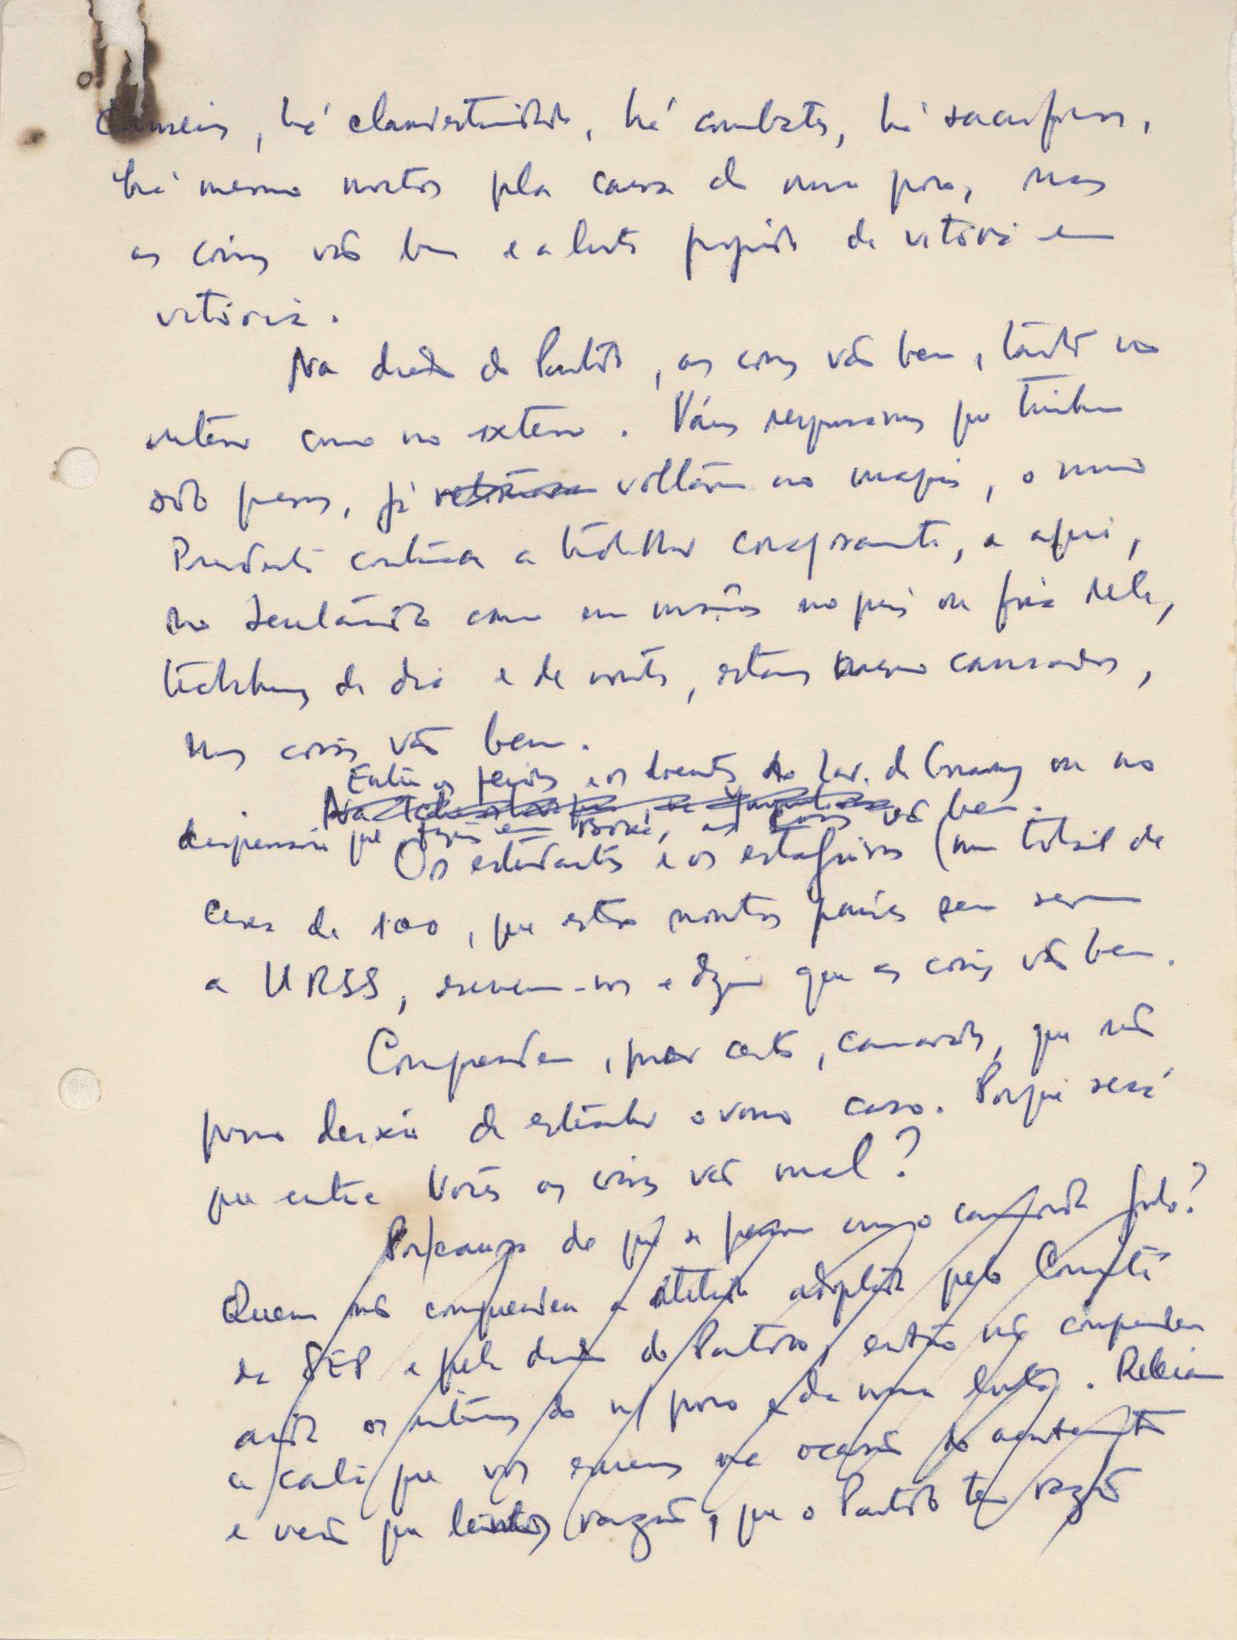 , há clandestinidade, há combates, há sacrifícios,
há mesmo mortos pela causa do nosso povo, mas
as coisas vão bem e a luta progride de vitória em
vitória.
Na direcção do Partido, as coisas vão bem, tanto no
interior como no exterior. Vários responsáveis que tinham
sido presos, já voltaram ao, o nosso
Presidente continua a trabalhar, e aqui,
no Secretariado como em missões no país ou fora dele,
trabalhamos de dia e de noite, estamos mesmo cansados,
mas as coisas vão bem.
Entre os feridos e os doentes do Lar de Conakry ou no
dispensário que, as coisas vão bem.
Os estudantes e os estagiários (num total de
cerca de 100, que estão noutros países sem serem
a URSS, escrevem-nos e dizem que as coisas vão bem.
Compreendem, por certo, camaradas, que não
posso deixar de estranhar o vosso caso. Porque será
que entre vocês as coisas vão mal?
Por causa do que se passou com o camarada?
Quem não compreendeu a atitude adoptada pelo Comité
da SEP e pela direcção do Partido, então não compreendeu
ainda os interesses do n/ povo e da nossa luta. Releiam
a carta que vos escrevemos na ocasião do
e verão que temos razão, que o Partido tem razão